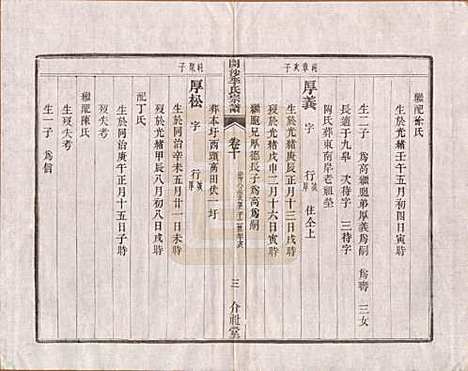 繼配徐氏
生於光緒壬午五月初四日寅時
生二子 為高繼胞弟厚義為嗣 為壽 三女
長適于九皋 次待字 三待字
陶氏葬東南岸老祖塋
純章次子
厚義 字 行 號 住仝上
生於光緒庚辰正月十三日戌時
歿於光緒戊申二月十六日寅時
繼胞兄厚德長子為高為嗣
李氏宗譜
卷十
三
介祉堂
葬本圩西頭高田伏一圩
純聚子
厚松 字 行 號
生於同治辛未五月廿一日未時
歿於光緒甲辰八月初八日戌時
配丁氏
生於同治庚午正月十五日子時
歿失考
繼龍陳氏
生歿失考
生一子 為信